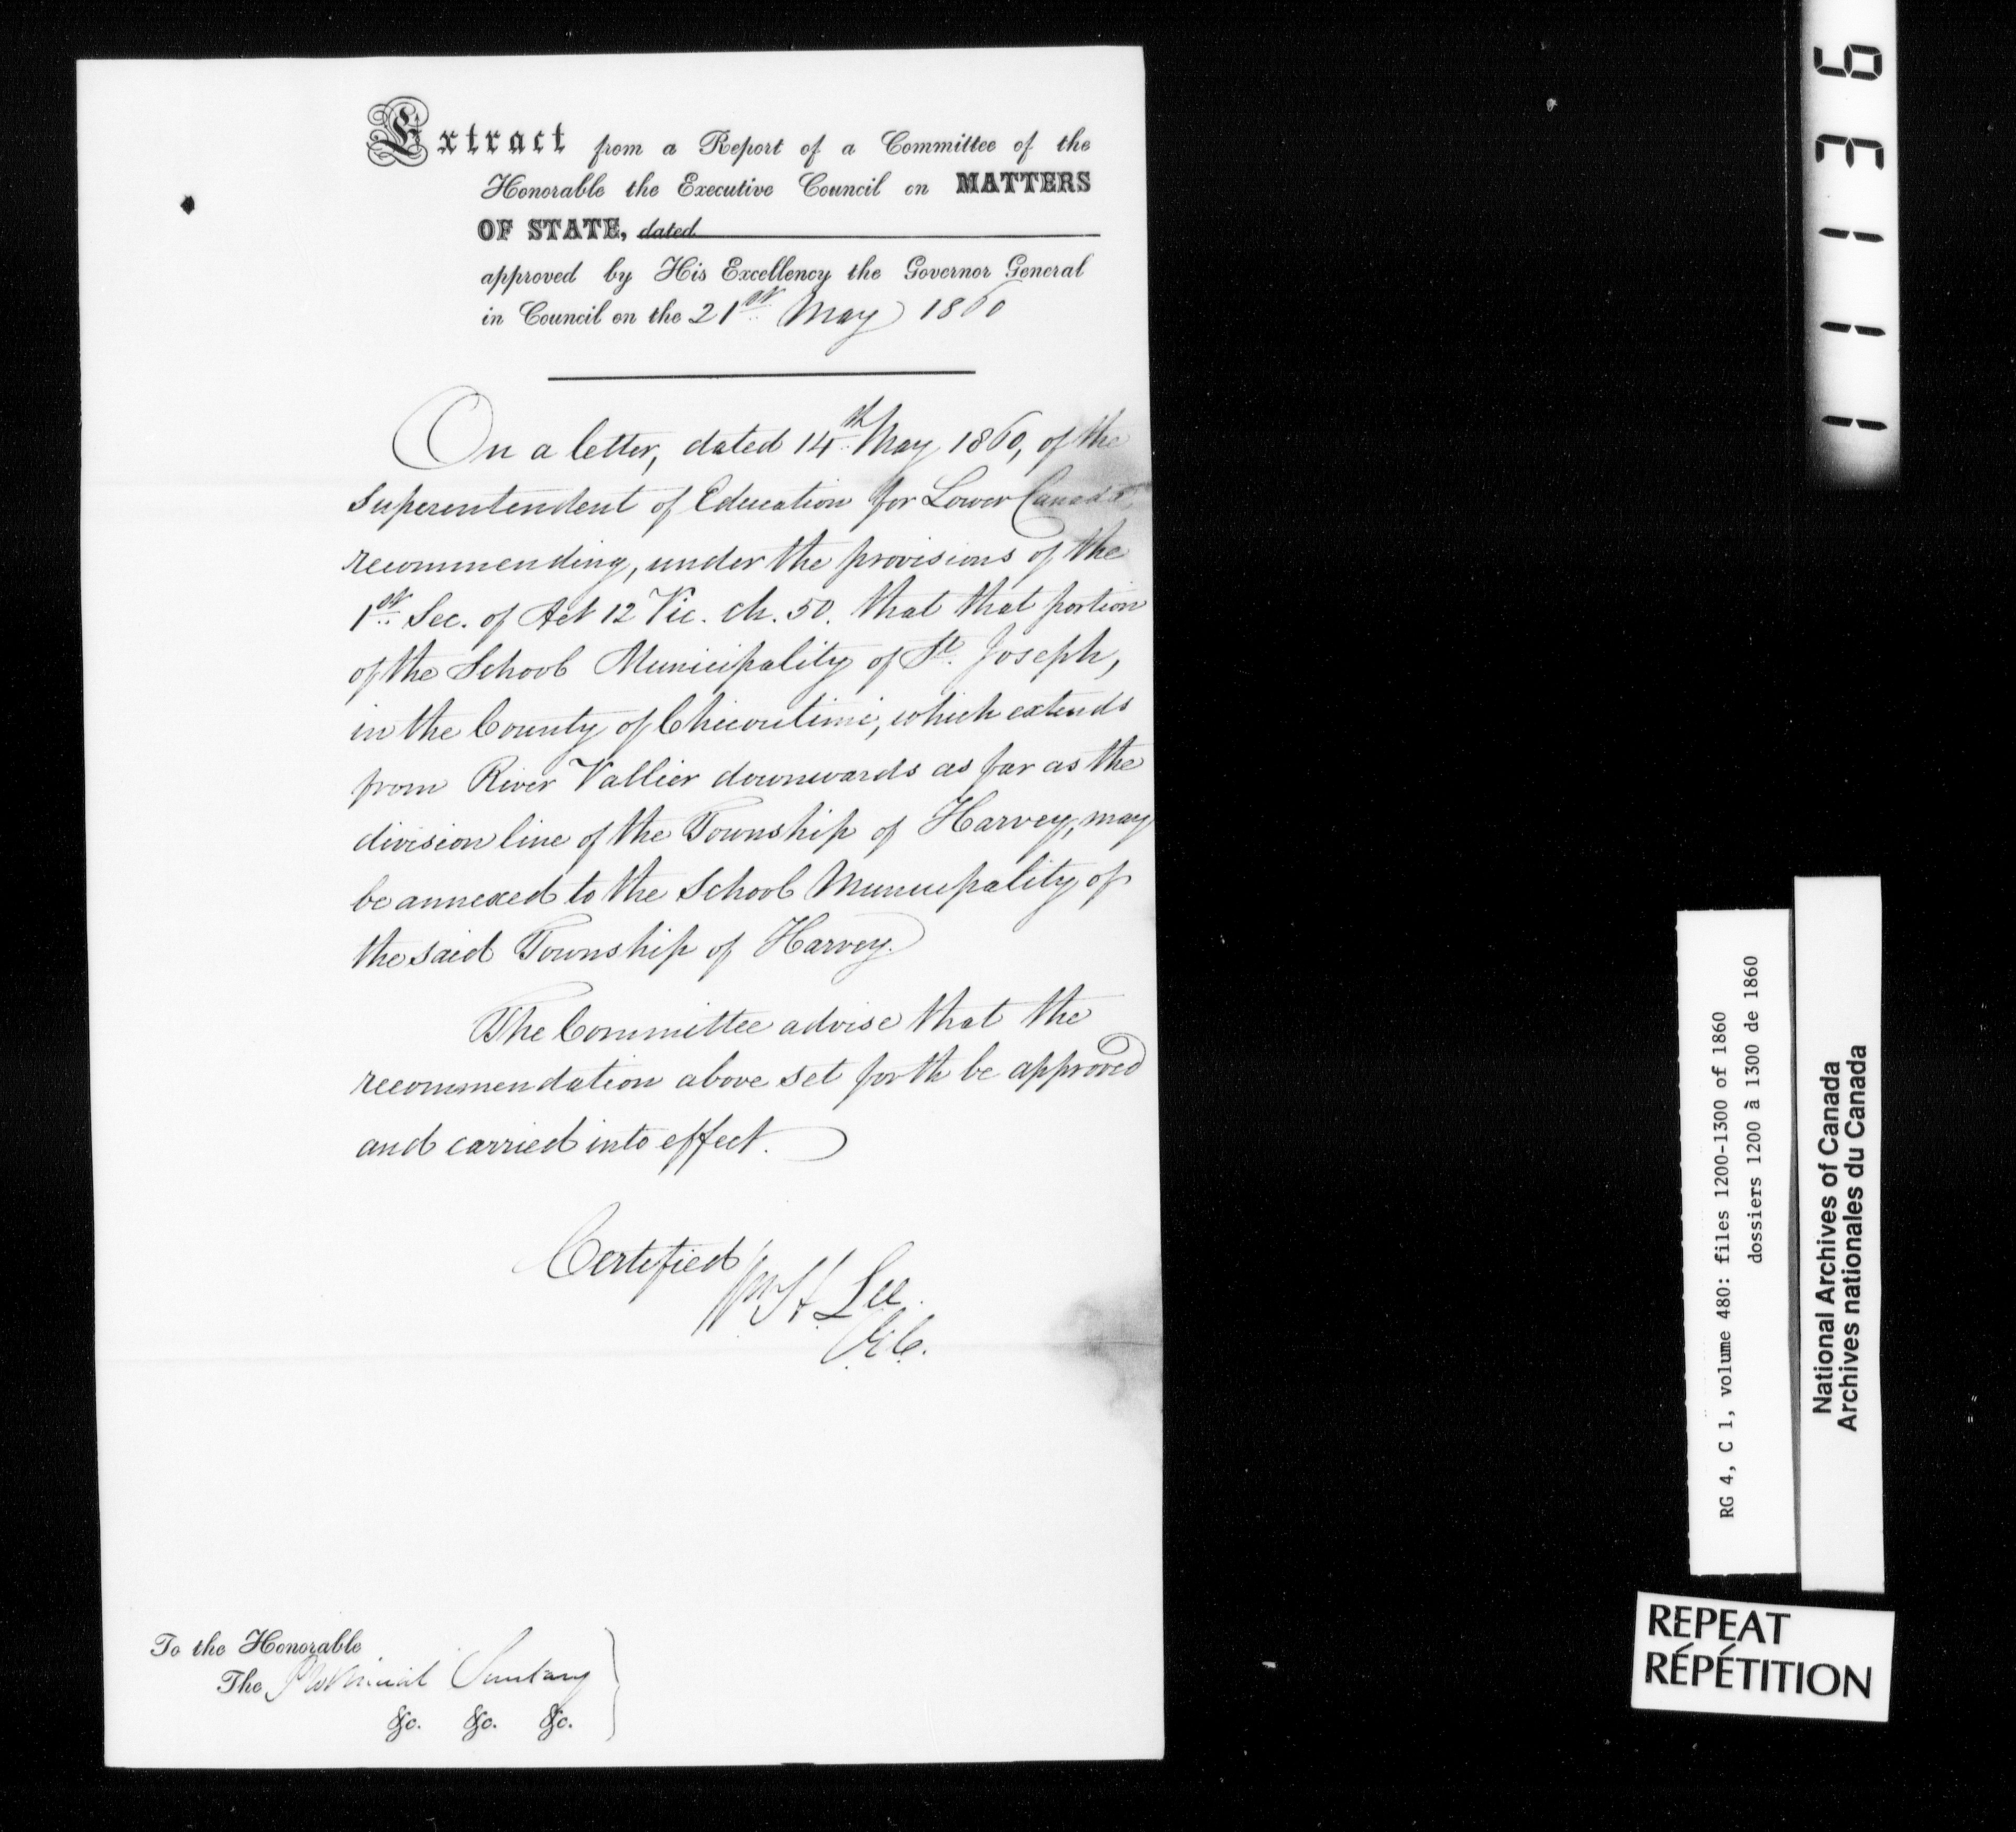 Extract from a Report of a Committee of the
Honorable the Executive Council on MATTERS
OF STATE, dated
approved by His Excellency the Governor General
in Council on the 21st May 1860
On a letter, dated 14th May 1860, of the
Superentendent of Education for Lower Canada
recommending, under the provisions of the
1st Sec. of Act 12 Vic. ch. 50. that that portion
of the School Municipality of St. Joseph,
in the County of Chicoutimi, which extends
from River Vallier downwards as far as the
division line of the Township of Harvey, may
be annexed to the School Municipality of
the said Township of Harvey.
The Committee advise that the
recommendation above set forth be approved
and carried into effect.
Certified
Wm H Lee
C.E.C.
To the Honorable
The Provincial Secretary
&c. &c. &c.
11136
RG 4, C 1, volume 480: files 1200-1300 of 1860
dossiers 1200 à 1300 de 1860
National Archives of Canada
Archives nationales du Canada
REPEAT
RÉPÉTITION